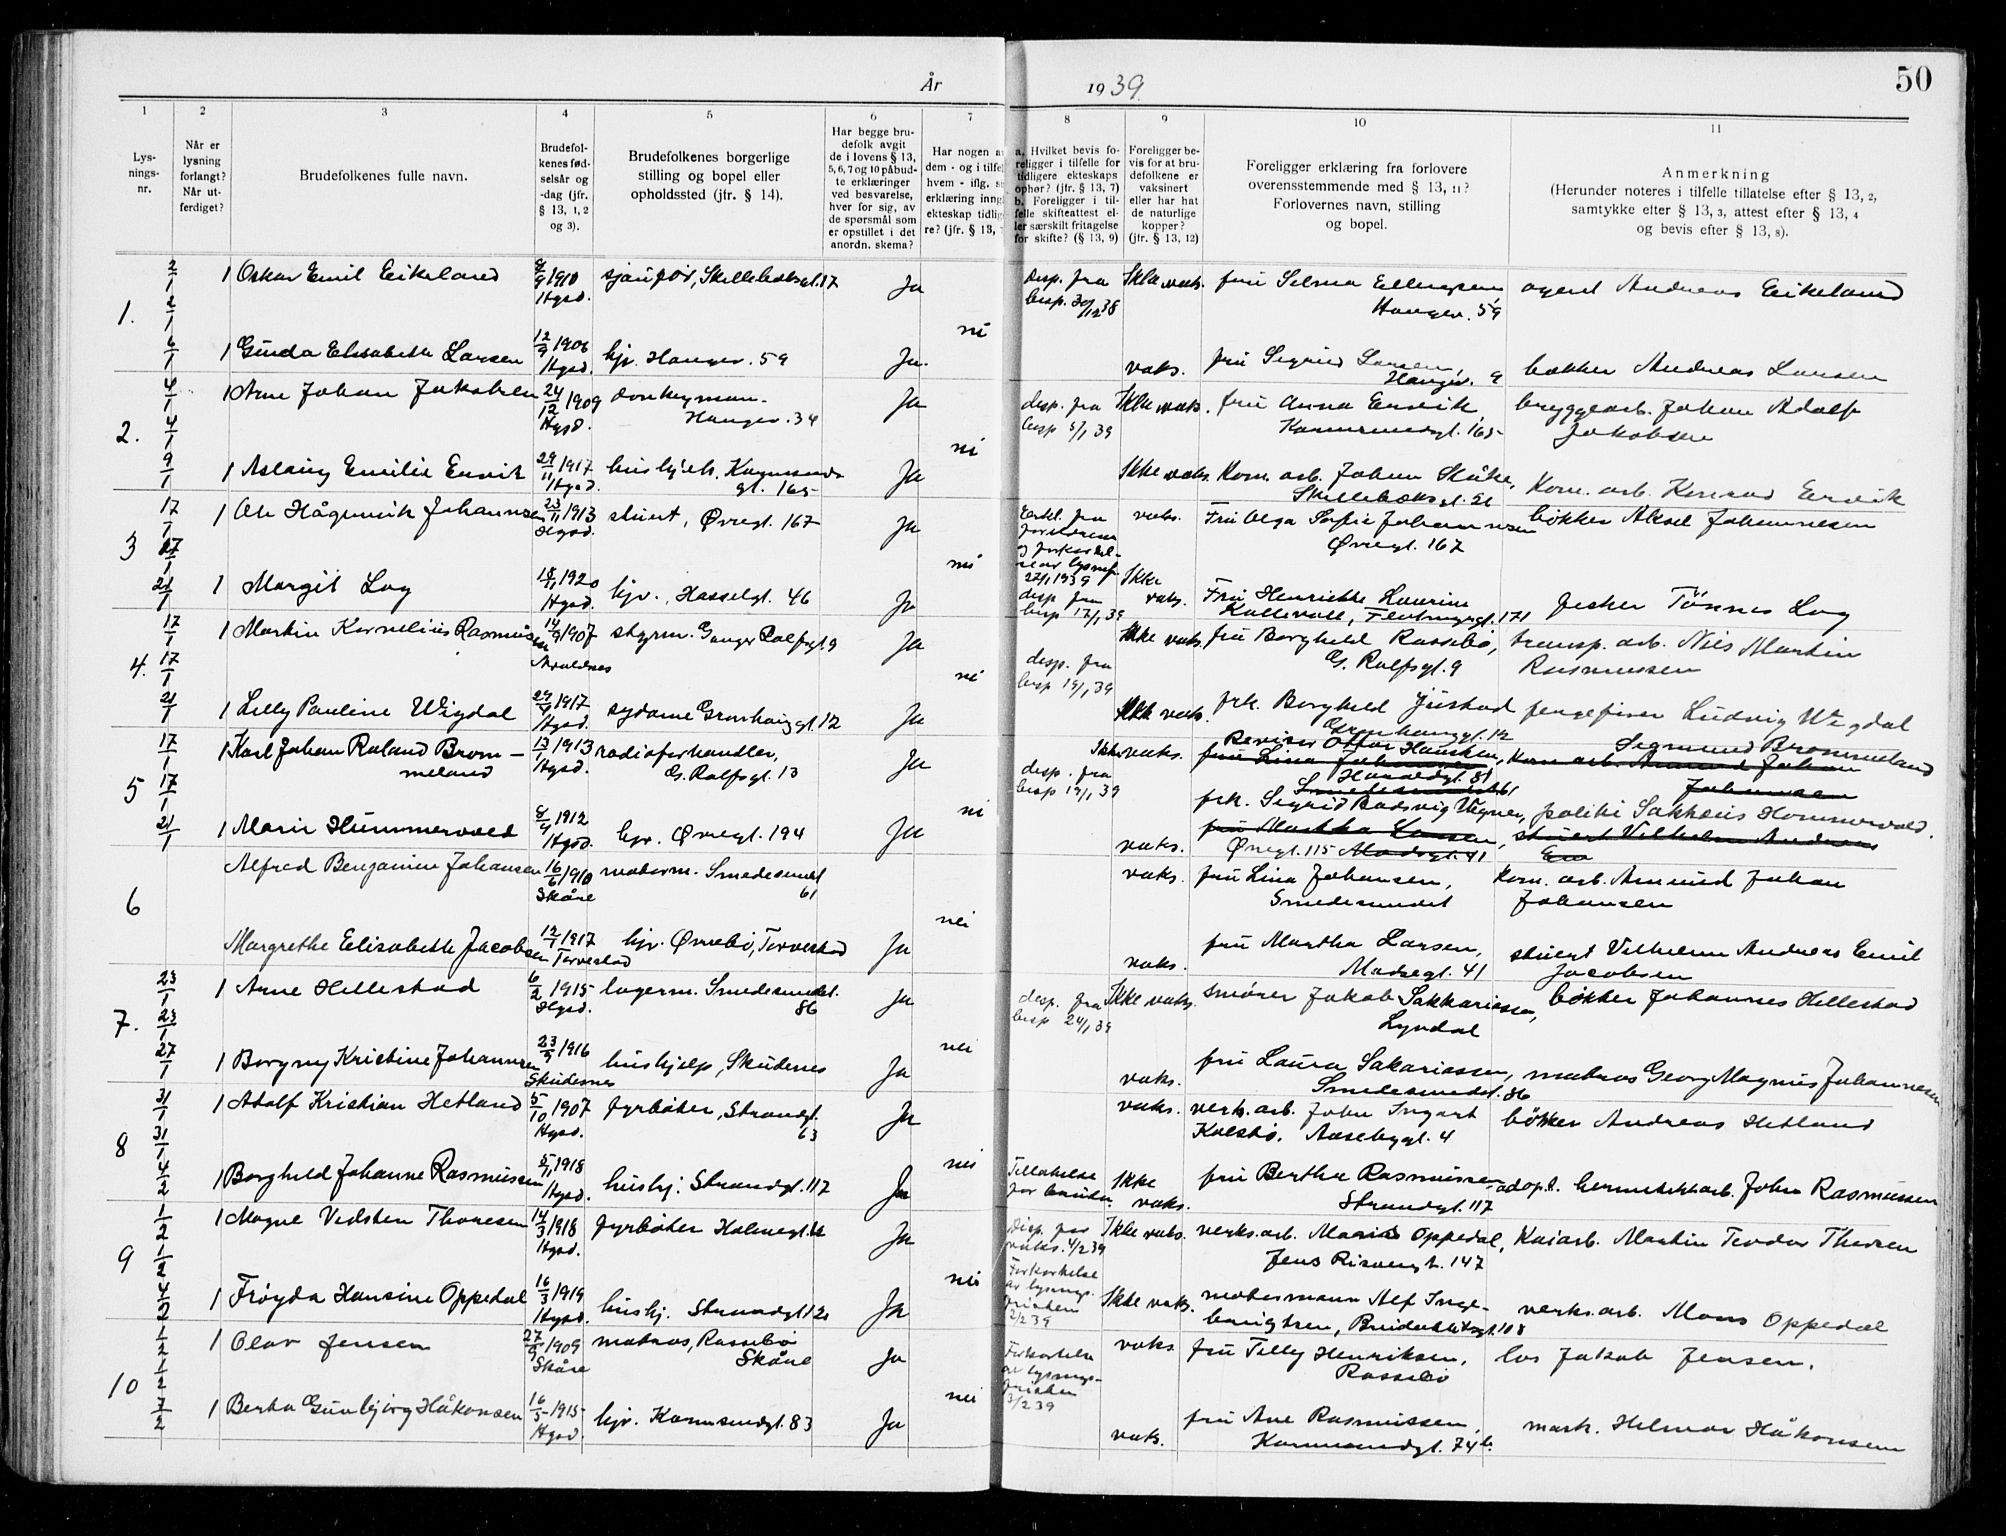 År 1939
50
1
2
3
4
5
6
7
8
9
10
11
Lys-
nings-
nr.
Når er
lysning
forlangt?
Når ut-
ferdiget?
Brudefolkenes fulle navn.
Brudefol-
kenes fød-
selsår og
-dag (jfr.
§ 13, 1, 2
og 3).
Brudefolkenes borgerlige
stilling og bopel eller
opholdssted (jfr. § 14).
Har begge bru-
defolk avgit
de i lovens § 13,
5, 6, 7 og 10 påbud-
te erklæringer
ved besvarelse,
hver for sig, av
de spørsmål som
er opstillet i det
anordn. skema?
Har nogen a
dem - og i tilfel
hvem - iflg. s
erklæring inng
ekteskap tidlig
re? (jfr. § 13,
a. Hvilket bevis fo-
religger i tilfelle for
tidligere ekteskaps
ophør? (jfr. § 13, 7)
b. Foreligger i til-
felle skifteattest el-
ler særskilt fritagelse
for skifte? (§ 13, 9)
Foreligger be-
vis for at bru-
defolkene er
vaksinert
eller har hat
de naturlige
kopper?
(jfr. § 13, 12)
Foreligger erklæring fra forlovere
overensstemmende med § 13, 11?
Forlovernes navn, stilling
og bopel.
Anmerkning
(Herunder noteres i tilfelle tillatelse efter § 13, 2,
samtykke efter § 13, 3, attest efter § 13, 4
og bevis efter § 13, 8).
1. 2/1 2/1 6/1
1 Oskar Emil Eikeland 1910 Hgsd. sjåufør, Skillebæksgt. 17 Ja
Disp. fra
lysp. 30/12 38
Ikke vaks. fru Selma Ellingsen
Hauger. 59
agent Andreas Eikeland
nei
1 Gunda Elisabeth Larsen 12/9 1906 Hgsd. hjv. Hauger. 59 Ja.
vaks. fru Sigrid Larsen,
Hauger. 9
bøkker Andreas Larsen
2. 4/1 4/1 9/1
1 Arne Johan Jakobsen 24/12 1909 Hgsd. donkeyman.
Hauger. 34 Ja
disp. fra
lysp 5/1 39
Ikke vaks. fru Anna Ervik,
Karmsundgt. 165
bryggearb. Johan Adolf
Jakobsen
nei
1 Aslaug Emilie Ervik 29/11 1917 Hgsd. hushjelp. Karmsunds
gt. 165 Ja
Ikke vaks. Kom. arb. Johan Skåke,
Skillebæksgt. 21
Kom. arb. Konrad Ervik
3 17/1 17/1 21/1
1 Ole Hågenvik Johannsen 23/11 1913 Hgsd. stuert, Øvregt. 167 Ja
27/1 1939
vaks. Fru Olga Sofie Johannesen
Øvregt. 167
bøkker Aksel Johannesen
nei
1 Margit Log 18/11 1920 Hgsd. hjv., Hasselgt. 46 Ja
disp fra
lysp 17/1 39
Ikke
vaks. Fru Henriette Laurine
Kallevoll, Flotmyrgt. 171
fisker Tønnes Log
4. 17/1 17/1 21/1
1 Martin Kornelius Rasmussen 14/9 1907 Avaldsnes styrm. Ganger Rolfsgt. 9 Ja
Ikke vaks. fru Borghild Rossebø,
G. Rolfsgt. 9
transp. arb. Nils Martin
Rasmussen
nei
disp. fra
lysp 19/1 39
1 Lilly Pauline Wigdal 1917 Hgsd. sydame Gronhauggt. 12 Ja
Ikke vaks. frk. Borghild Justad
Gronhauggt. 12
pengefører Ludvig Wigdal
5 17/1 17/1 21/1
1 Karl Johan Roland Brom-
meland 13/1 1913 Hgsd. radioforhandler,
G. Rolfsgt. 13 Ja
disp. fra
lysp 19/1 39
Ikke vaks. Revisor Ottar Hansken,
Haraldgt. 81
fru Lina Johannsen,
Smedesundet 61
Sigmund Brommeland
Kom arb. Amund Johan
Johansen
nei
1 Marie Hummervold 8/9 1912 Hgsd. hjv. Øvregt. 194 Ja
vaks. frk. Sigrid Rødsvig Wegner,
Øvregt. 115
fru Martha Larsen,
Madsgt. 41
politi Sakkeus Hommervold.
stuert Vilhelm Andreas
Em
6
Alfred Benjamin Johansen 16/6 1910 Skåre matorm. Smedesundet
61
vaks. fru Lina Johansen,
Smedesundet
Kom. arb. Amund Johan
Johansen
nei
Margrethe Elisabeth Jacobsen 12/1 1917 Torvestad hjv. Øvrebø, Torvestad Ja
vaks. fru Martha Larsen,
Madsegt. 41
stuert Vilhelm Andreas Emil
Jacobsen
7. 23/1 23/1 27/1
1 Arne Hellestad 6/2 1915 Hgsd. lagerm. Smedesundet.
86 Ja
disp. fra
lysp 24/1 39
Ikke vaks. smører Jakob Sakkariassen,
Lyndal
bøkker Johannes Hellestad
nei
1 Borgny Kristine Johannesen 23/9 1916 Skudenes hushjelp, Skudenes Ja
vaks. fru Laura Sakariassen,
Smedesundet. 86
matros Georg Magnus Johannesen
8 31/1 31/1 4/2
1 Adolf Kristian Hetland 5/10 1907 Hgsd. fyrbøter, Strandgt.
63 Ja
vaks. verk. arb. John Ingart
Kolstø, Aasebygt. 4
bøkker Andreas Hetland
nei
1 Borghild Johanne Rasmussen 5/11 1918 Hgsd. hushj. Strandgt. 117 Ja
Tillatelse
for bruden
Ikke
vaks. fru Bertha Rasmussen
Strandgt. 117
adopt. hermetikkarb. John Rasmussen
9 1/2 1/2 4/2
1 Magne Vedsten Thoresen 14/3 1918 Hgsd. fyrbøter Holmegt. Ja
Disp. for
vaks. 4/2 39
Ikke vaks. verks. arb. Marius Oppedal,
Jens Risøengt. 147
Kaiarb. Martin Teodor Thorsen
nei
1 Frøyda Hansine Oppedal 16/3 1919 Hgsd. hushj. Strandgt. Ja
Forkortelse
av lysnings-
fristen
2/2 39
Ikke vaks. matesmann Alf Inge-
brigtsen,
verks. arb. Mons Oppedal
10 1/2 1/2 7/2
1 Olav Jensen 27/9 1909 Skåre matros, Rossebø
Skåre Ja
Forkortelse
av lysnings-
fristen
3/2 39
vaks fru Tilly Henriksen,
Rossebø
los Jakob Jensen.
nei
1 Berta Gunbjørg Håkonsen 16/5 1915 Hgsd. hjv. Karmsundgt. 83 Ja
vaks. fru Ane Rasmussen,
Karmsundgt. 74 b.
mask. Helmar Håkonsen